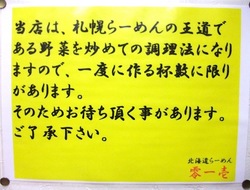 当店は、札幌らーめんの王道で
ある野菜を炒めての調理法になり
ますので、一度に作る杯数に限り
があります。
そのためお待ち頂く事があります。
ご了承下さい。
北海道らーめん
零一壱